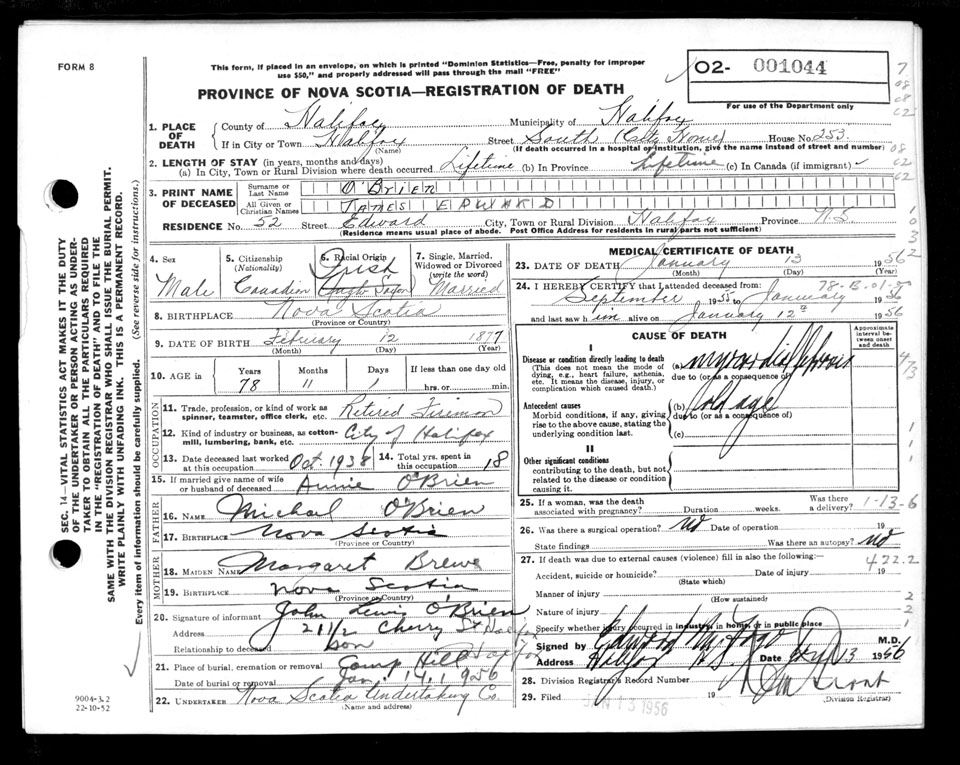 FORM 8
This form, if placed in an envelope, on which is printed "Dominion Statistics—Free, penalty for improper
use $50," and properly addressed will pass through the mail "FREE"
02- 001044
For use of the Department only
PROVINCE OF NOVA SCOTIA—REGISTRATION OF DEATH
1. PLACE OF DEATH
County of Halifax Municipality of Halifax
If in City or Town Halifax (Name) Street South (City Home) House No. 253
(If death occurred in a hospital or institution, give the name instead of street and number)
2. LENGTH OF STAY (in years, months and days)
(a) In City, Town or Rural Division where death occurred Lifetime (b) In Province Lifetime (c) In Canada (if immigrant)
3. PRINT NAME OF DECEASED
Surname or Last Name O'BRIEN
All Given or Christian Names JAMES EDWARD
RESIDENCE No. 52 Street Edward City, Town or Rural Division Halifax Province N.S.
(Residence means usual place of abode. Post Office Address for residents in rural parts not sufficient)
4. Sex Male
5. Citizenship (Nationality) Canadian
6. Racial Origin Irish
7. Single, Married, Widowed or Divorced (write the word) Married
8. BIRTHPLACE Nova Scotia
(Province or Country)
9. DATE OF BIRTH February 12 1877
(Month) (Day) (Year)
10. AGE in Years Months Days If less than one day old
78 11 1 hrs. or min.
OCCUPATION
11. Trade, profession, or kind of work as spinner, teamster, office clerk, etc. Retired Fireman
12. Kind of industry or business, as cotton-mill, lumbering, bank, etc. City of Halifax
13. Date deceased last worked at this occupation Oct. 1938
14. Total yrs. spent in this occupation 18
15. If married give name of wife or husband of deceased Annie O'Brien
FATHER
16. NAME Michael O'Brien
17. BIRTHPLACE Nova Scotia
(Province or Country)
MOTHER
18. MAIDEN NAME Margaret
19. BIRTHPLACE Nova Scotia
(Province or Country)
20. Signature of informant John Lewis O'Brien
Address 21 1/2 Cherry St Halifax
Relationship to deceased Son
21. Place of burial, cremation or removal Camp Hill Halifax
Date of burial or removal Jan. 14, 1956
22. UNDERTAKER Nova Scotia Undertaking Co.
(Name and address)
MEDICAL CERTIFICATE OF DEATH
23. DATE OF DEATH January 13 1956
(Month) (Day) (Year)
24. I HEREBY CERTIFY that I attended deceased from:
78-B-01-5
September 1955 to January 1956
and last saw him alive on January 12th 1956
CAUSE OF DEATH
Approximate interval between onset and death
I
Disease or condition directly leading to death
(This does not mean the mode of dying, e.g., heart failure, asthenia, etc. It means the disease, injury, or complication which caused death.)
(a)
due to (or as a consequence of)
Antecedent causes
Morbid conditions, if any, giving rise to the above cause, stating the underlying condition last.
(b) old age
due to (or as a consequence of)
(c)
II
Other significant conditions
contributing to the death, but not related to the disease or condition causing it.
25. If a woman, was the death associated with pregnancy? Duration weeks. Was there a delivery?
1-13-6
26. Was there a surgical operation? No Date of operation 19
State findings Was there an autopsy? No
27. If death was due to external causes (violence) fill in also the following:
422.2
Accident, suicide or homicide? Date of injury 19
(State which)
Manner of injury
(How sustained)
Nature of injury
Specify whether injury occurred in industry, in home, or in public place
Signed by M.D.
Address Halifax N.S. Date 13 1956
28. Division Registrar's Record Number
29. Filed JAN 13 1956 19
(Division Registrar)
SEC. 14—VITAL STATISTICS ACT MAKES IT THE DUTY
OF THE UNDERTAKER OR PERSON ACTING AS UNDER-
TAKER TO OBTAIN ALL THE PARTICULARS REQUIRED
IN THE "REGISTRATION OF DEATH" AND TO FILE THE
SAME WITH THE DIVISION REGISTRAR WHO SHALL ISSUE THE BURIAL PERMIT.
WRITE PLAINLY WITH UNFADING INK. THIS IS A PERMANENT RECORD.
Every item of information should be carefully supplied. (See reverse side for instructions.)
9004-3.2
22-10-52